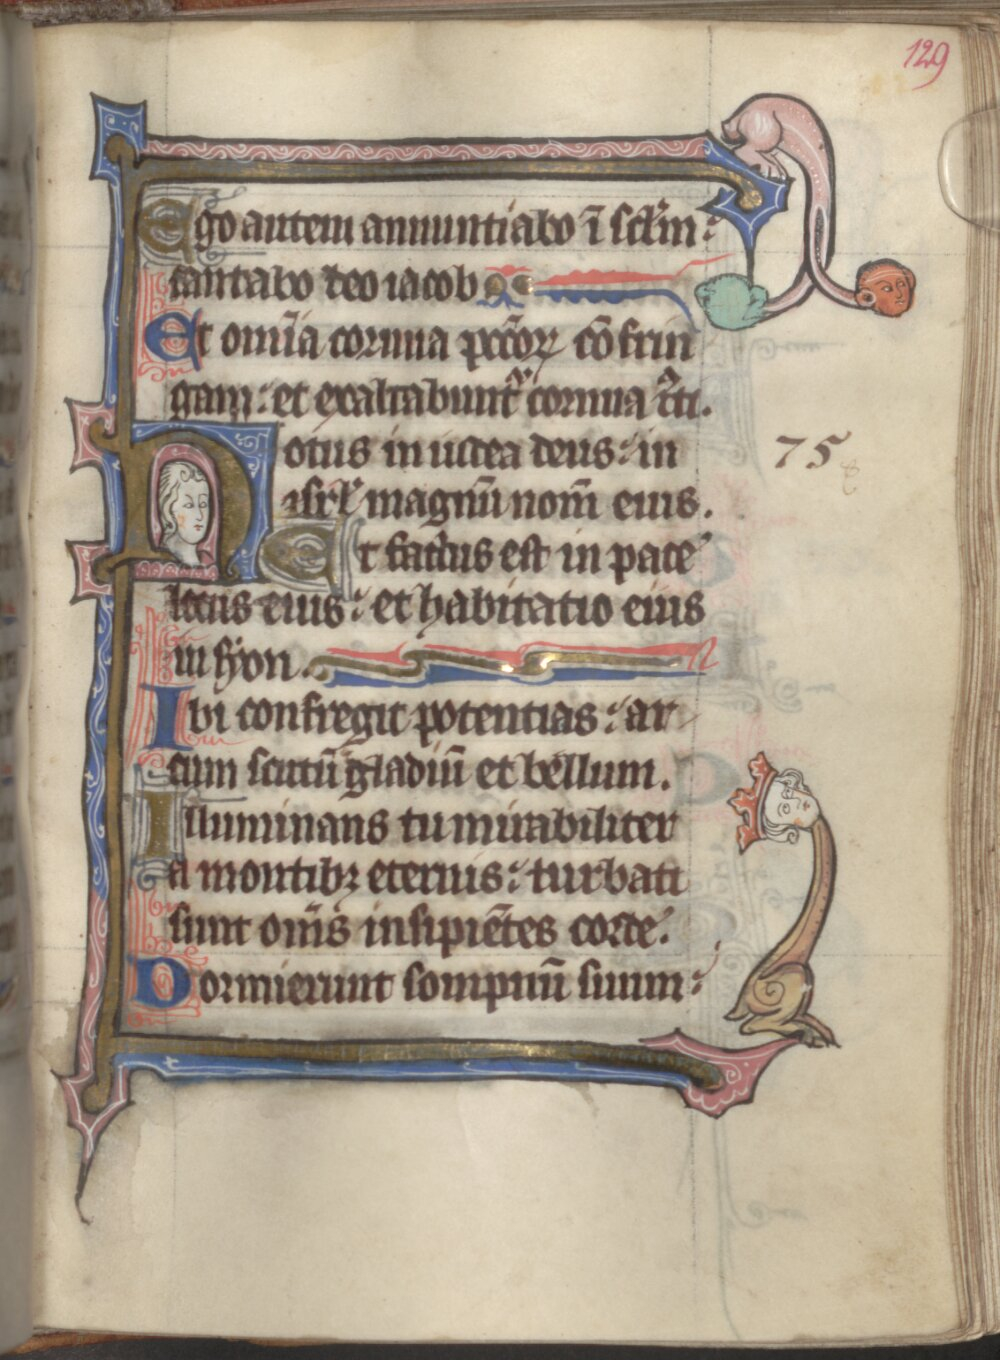 129
Ego autem annuntiabo ī sclm:
cantabo deo iacob
Et om̄ia cornua pccōꝝ cōfrin
gam: et exaltabunt᷑ cornua iusti.
75
Notus in iudea deus: in
isrl̄ magnū nom̄ eius.
Et factus est in pace
locus eius: et habitatio eius
in syon.
Ibi confregit potentias: ar
cum scutū gladiū et bellum.
Illuminans tu mirabiliter
a montibꝫ eternis: turbati
sunt om̄s insipiētes corde.
Dormierunt sompnū suum: